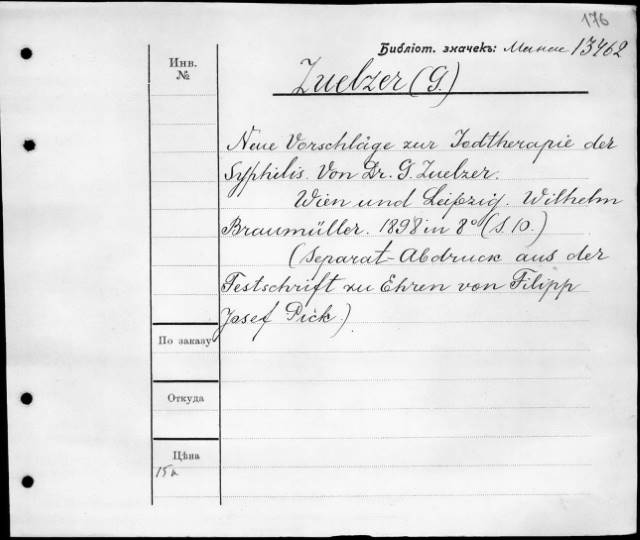 176
Библіот. значекъ: 13462
Инв.
№
Zuelzer (G.)
Neue Vorschläge zur Jodtherapie der
Syphilis. Von Dr. G. Zuelzer.
Wien und Leipzig. Wilhelm
Braumüller. 1898 in 8° (S 10.)
(Separat-Abdruck aus der
Festschrift zu Ehren von Filipp
Josef Pick.)
По заказу
Откуда
Цѣна